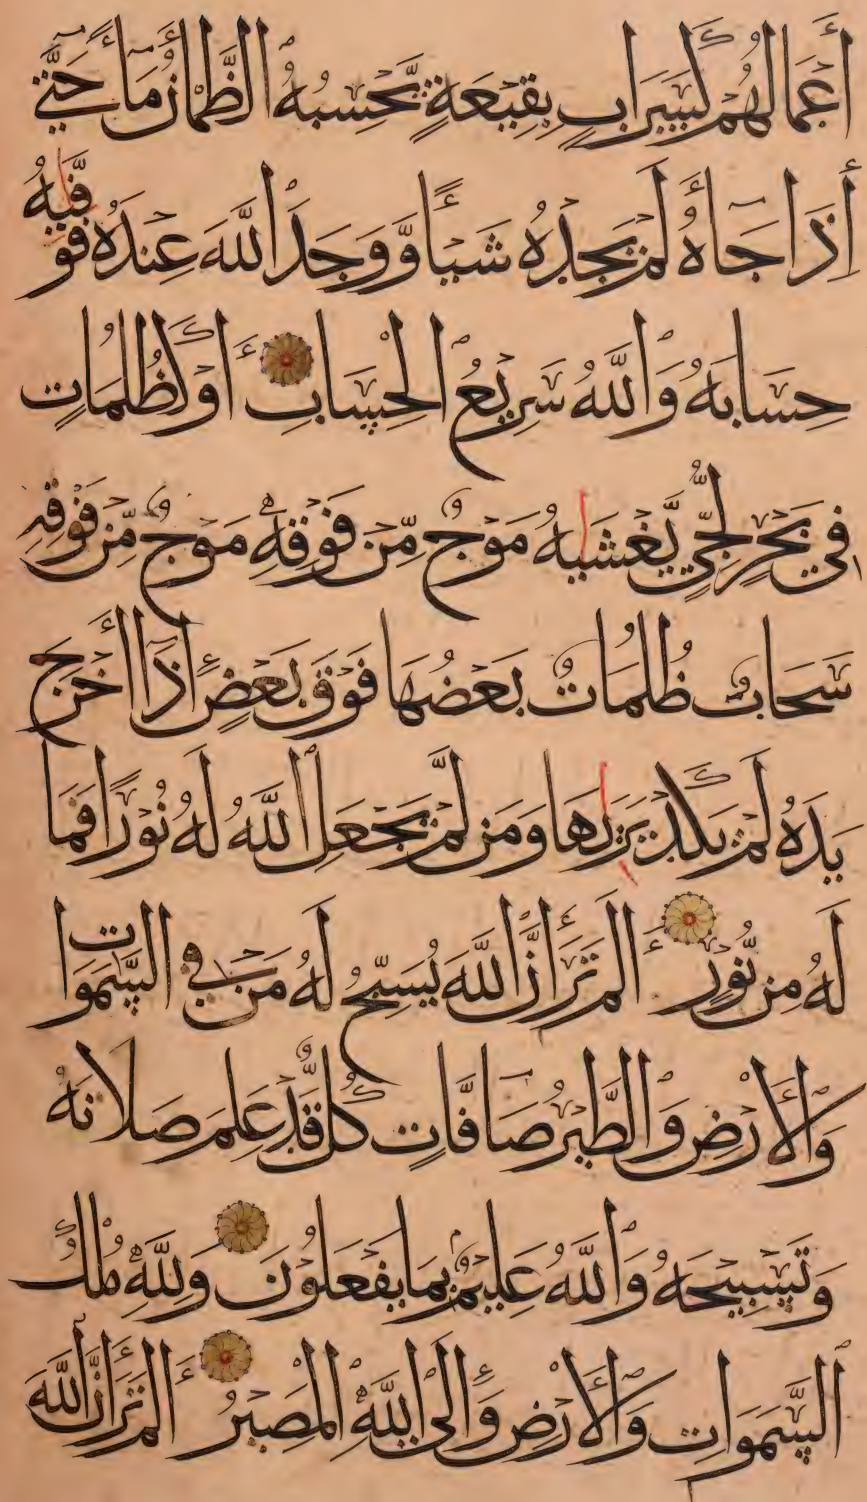 أَعْمَالُهُمْ كَسَرَابٍ بِقِيعَةٍ يَّحْسَبُهُ الظَّمْاٰنُ مَآءً حَتّٰى
إِذَا جَآءَهُ لَمْ يَجِدْهُ شَيْـًٔا وَّوَجَدَ اللَّهَ عِنْدَهُ فَوَفّٰيهُ
حِسَابَهُ وَاللَّهُ سَرِيعُ الْحِسَابِ أَوْ كَظُلُمَاتٍ
فِي بَحْرٍ لُّجِّيٍّ يَّغْشٰيهُ مَوْجٌ مِّنْ فَوْقِهِ مَوْجٌ مِّنْ فَوْقِهِ
سَحَابٌ ظُلُمَاتٌ بَعْضُهَا فَوْقَ بَعْضٍ إِذَآ أَخْرَجَ
يَدَهُ لَمْ يَكَدْ يَرٰيهَا وَمَنْ لَّمْ يَجْعَلِ اللَّهُ لَهُ نُوْرًا فَمَا
لَهُ مِنْ نُّوْرٍ أَلَمْ تَرَ أَنَّ اللَّهَ يُسَبِّحُ لَهُ مَنْ فِي السَّمَوَاتِ
وَالْأَرْضِ وَالطَّيْرُ صَآفَّاتٍ كُلٌّ قَدْ عَلِمَ صَلَاتَهُ
وَتَسْبِيحَهُ وَاللَّهُ عَلِيمٌ بِمَا يَفْعَلُوْنَ وَلِلَّهِ مُلْكُ
السَّمَوَاتِ وَالْأَرْضِ وَإِلَى اللَّهِ الْمَصِيْرُ أَلَمْ تَرَ أَنَّ اللَّهَ